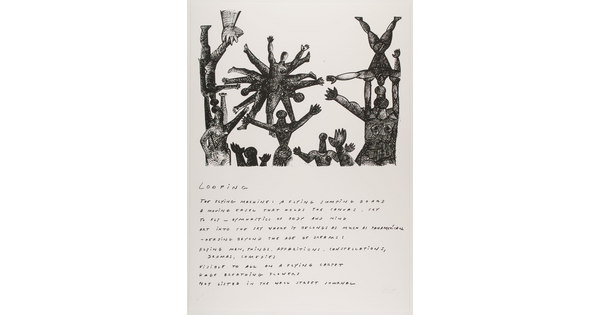 LOOPING
THE FLYING MACHINE: A FLYING JUMPING BOARD
A MOVING EASEL THAT HOLDS THE CANVAS, SET
TO FLY - GYMNASTICS OF BODY AND MIND
ART INTO THE SKY WHERE IT BELONGS AS MUCH AS
- HEADING BEYOND THE AGE OF
FLYING MEN, THINGS, APPARITIONS, CONSTELLATIONS,
DRAMAS, COMEDIES
VISIBLE TO ALL ON A FLYING CARPET
HUGE BREATHING FLOWERS
NOT LISTED IN THE WALL STREET JOURNAL